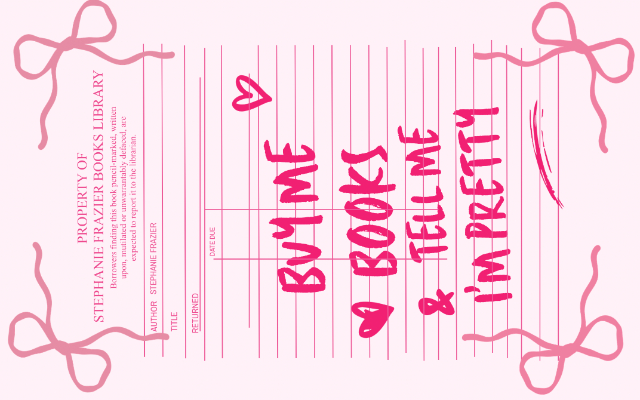 PROPERTY OF
STEPHANIE FRAZIER BOOKS LIBRARY
Borrowers finding this book pencil-marked, written
upon, mutilated or unwarrantably defaced, are
expected to report it to the librarian.
AUTHOR STEPHANIE FRAZIER
TITLE
RETURNED
DATE DUE
BUY ME
BOOKS
& TELL ME
I'M PRETTY